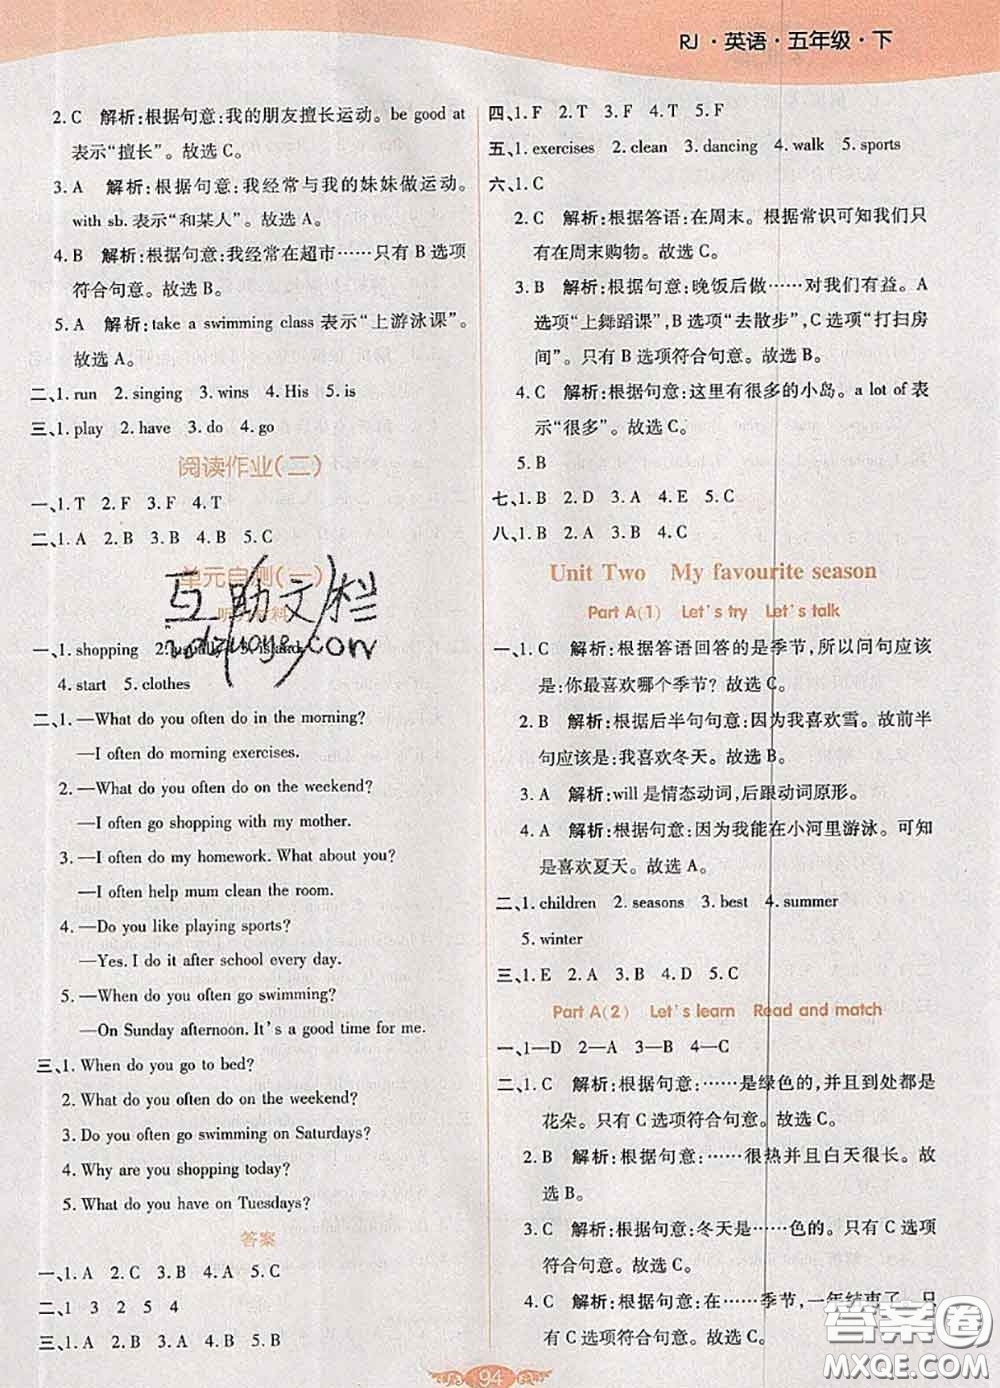 RJ·英语·五年级·下
2. C 解析:根据句意:我的朋友擅长运动。be good at
表示“擅长”。故选 C。
3. A 解析:根据句意:我经常与我的妹妹做运动。
with sb. 表示“和某人”。故选 A。
4. B 解析:根据句意:我经常在超市……只有 B 选项
符合句意。故选 B。
5. A 解析:take a swimming class 表示“上游泳课”。
故选 A。
二、1. run 2. singing 3. wins 4. His 5. is
三、1. play 2. have 3. do 4. go
阅读作业(二)
一、1. T 2. F 3. F 4. T
二、1. A 2. B 3. B 4. B 5. C
单元自测(一)
一、1. shopping 2. usually 3. island
4. start 5. clothes
二、1. —What do you often do in the morning?
—I often do morning exercises.
2. —What do you often do on the weekend?
—I often go shopping with my mother.
3. —I often do my homework. What about you?
—I often help mum clean the room.
4. —Do you like playing sports?
—Yes. I do it after school every day.
5. —When do you go swimming?
—On Sunday afternoon. It's a good time for me.
三、1. When do you go to bed?
2. What do you often do on the weekend?
3. Do you often go swimming on Saturdays?
4. Why are you shopping today?
5. What do you have on Tuesdays?
答案
一、1. A 2. C 3. B 4. A 5. C
二、1 3 2 5 4
三、1. B 2. A 3. A 4. B 5. B
四、1. F 2. T 3. T 4. F 5. F
五、1. exercises 2. clean 3. dancing 4. walk 5. sports
六、1. C
2. C 解析:根据答语:在周末。根据常识可知我们只
有在周末购物。故选 C。
3. B 解析:根据句意:晚饭后做……对我们有益。A
选项“上舞蹈课”,B 选项“去散步”,C 选项“打扫房
间”。只有 B 选项符合句意。故选 B。
4. C 解析:根据句意:这里有很多的小岛。a lot of 表
示“很多”。故选 C。
5. B
七、1. B 2. D 3. A 4. E 5. C
八、1. B 2. A 3. B 4. C
Unit Two My favourite season
Part A(1) Let's try Let's talk
一、1. C 解析:根据答语回答的是季节,所以问句应该
是:你最喜欢哪个季节? 故选 C。
2. B 解析:根据后半句句意:因为我喜欢雪。故前半
句应该是:我喜欢冬天。故选 B。
3. A 解析:will 是情态动词,后跟动词原形。
4. A 解析:根据句意:因为我能在小河里游泳。可知
是喜欢夏天。故选 A。
二、1. children 2. seasons 3. best 4. summer
5. winter
三、1. E 2. A 3. B 4. D 5. C
Part A(2) Let's learn Read and match
一、1—D 2—A 3—B 4—C
二、1. C 解析:根据句意:……是绿色的,并且到处都是
花朵。只有 C 选项符合句意。故选 C。
2. B 解析:根据句意:……很热并且白天很长。故
选 B。
3. C 解析:根据句意:冬天是……色的。只有 C 选项
符合句意。故选 C。
4. C 解析:根据句意:在……季节,一年结束了。只
有 C 选项符合句意。故选 C。
94
互助文档
答案圈
MXQE.COM